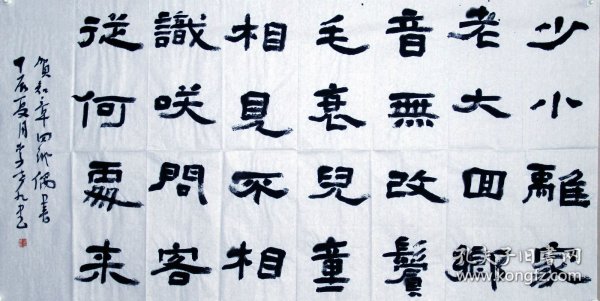 少小離家
老大回鄉
音無改鬢
毛衰兒童
相見不相
識咲問客
從何處来
賀知章回鄉偶書
孔夫子旧书网
www.kongfz.com